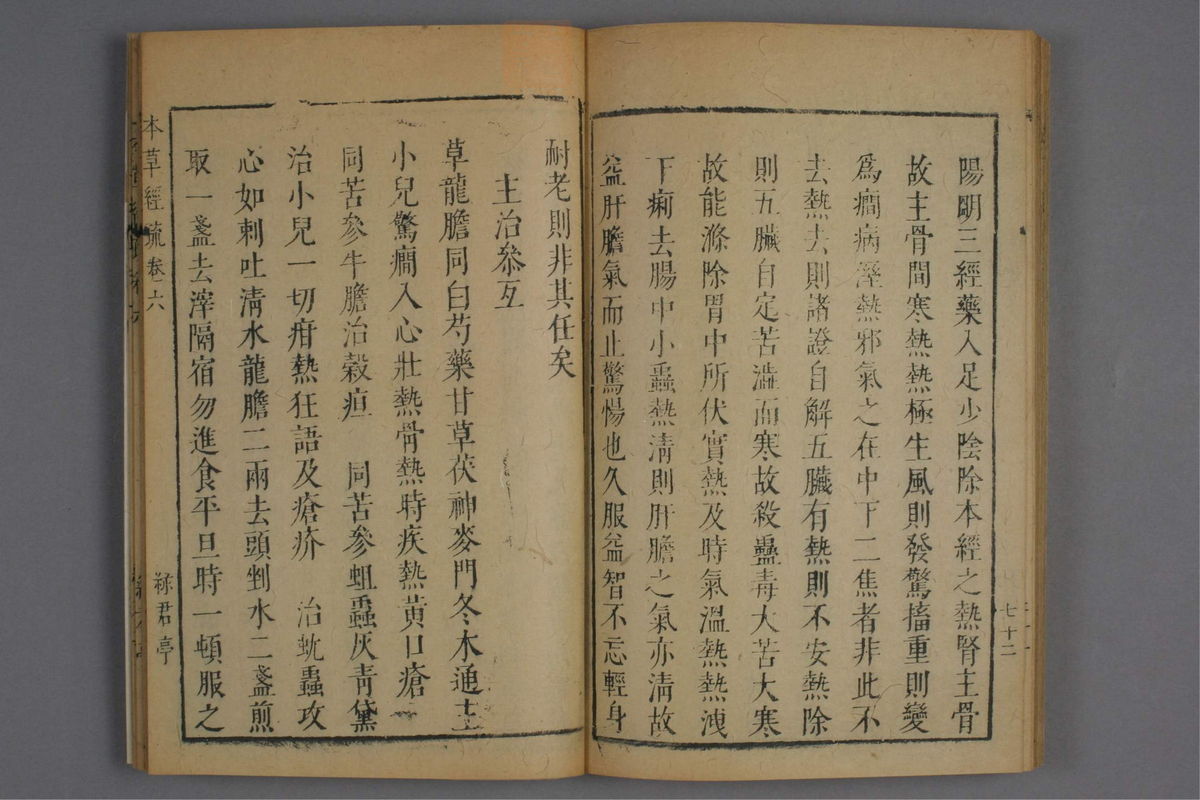 陽明三經藥入足少陰除本經之熱腎主骨
故主骨間寒熱熱極生風則發驚搐重則變
爲癎病溼熱邪氣之在中下二焦者非此不
去熱去則諸證自解五臟有熱則不安熱除
則五臟自定苦澁而寒故殺蠱毒大苦大寒
故能滌除胃中所伏實熱及時氣溫熱熱洩
下痢去腸中小蟲熱清則肝膽之氣亦清故
益肝膽氣而止驚惕也久服益智不忘輕身
七十二
耐老則非其任矣
主治叅互
草龍膽同白芍藥甘草茯神麥門冬木通主
小兒驚癎入心壯熱骨熱時疾熱黃口瘡
同苦參牛膽治穀疸 同苦參蛆蟲灰青黛
治小兒一切疳熱狂語及瘡疥 治蚘蟲攻
心如刺吐清水龍膽二兩去頭剉水二盞煎
取一盞去滓隔宿勿進食平旦時一頓服之
本草經疏卷六
綠君亭